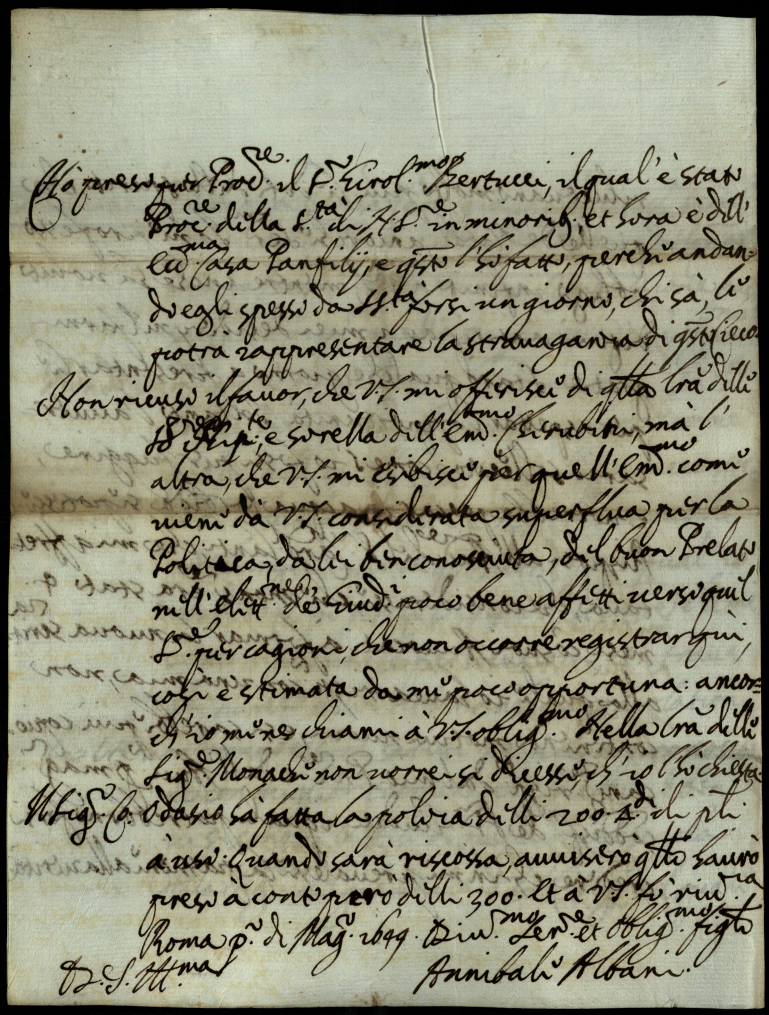 Hò preso per Proc.re il S.r Girol.mo Bertucci, il qual'è stato
Proc.re della S.tà di N. S.re in minorib. et hora è dell'
Ecc.ma Casa Panfilij, e q̃sto l'hò fatto, perche andan=
do egli spesso da S.Stà forsi un giorno, chi sà, le
potrà rappresentare la stravaganza di q̃sto
Non ricuso il favor, che V.S. mi offerisce di q̃lla lrã delle
e sorella dell'Em.mo Cherubini, mà l'
altra, che V.S. mi esibisce per quell'Em.mo come
viene dà V.S. considerata superflua per la
Politica, da lei ben conosciuta, del buon Prelato
nell'elett.ne de Giud.i poco bene affetti verso quel
S.re per cagioni, che non occorre registrar qui,
così è stimata da me poco opportuna: ancor=
ch'io me ne chiami à V.S. oblig.mo Nella lrã delle
Sig.re Monache non vorrei si dicesse, ch'io l'hò chiesta.
Il Sig.r Co. Odasio hà fatta la poliza delli 200 di pli
à uso: Quando sarà riscossa, avviserò q̃llo haurò
preso à conto però delli 300. Et à V.S. fò riu.za
Roma p.o di Mag.o 1649. Diu.mo Ser.re et Oblig.mo figlo
D. V. S. Ill.ma Annibale Albani.